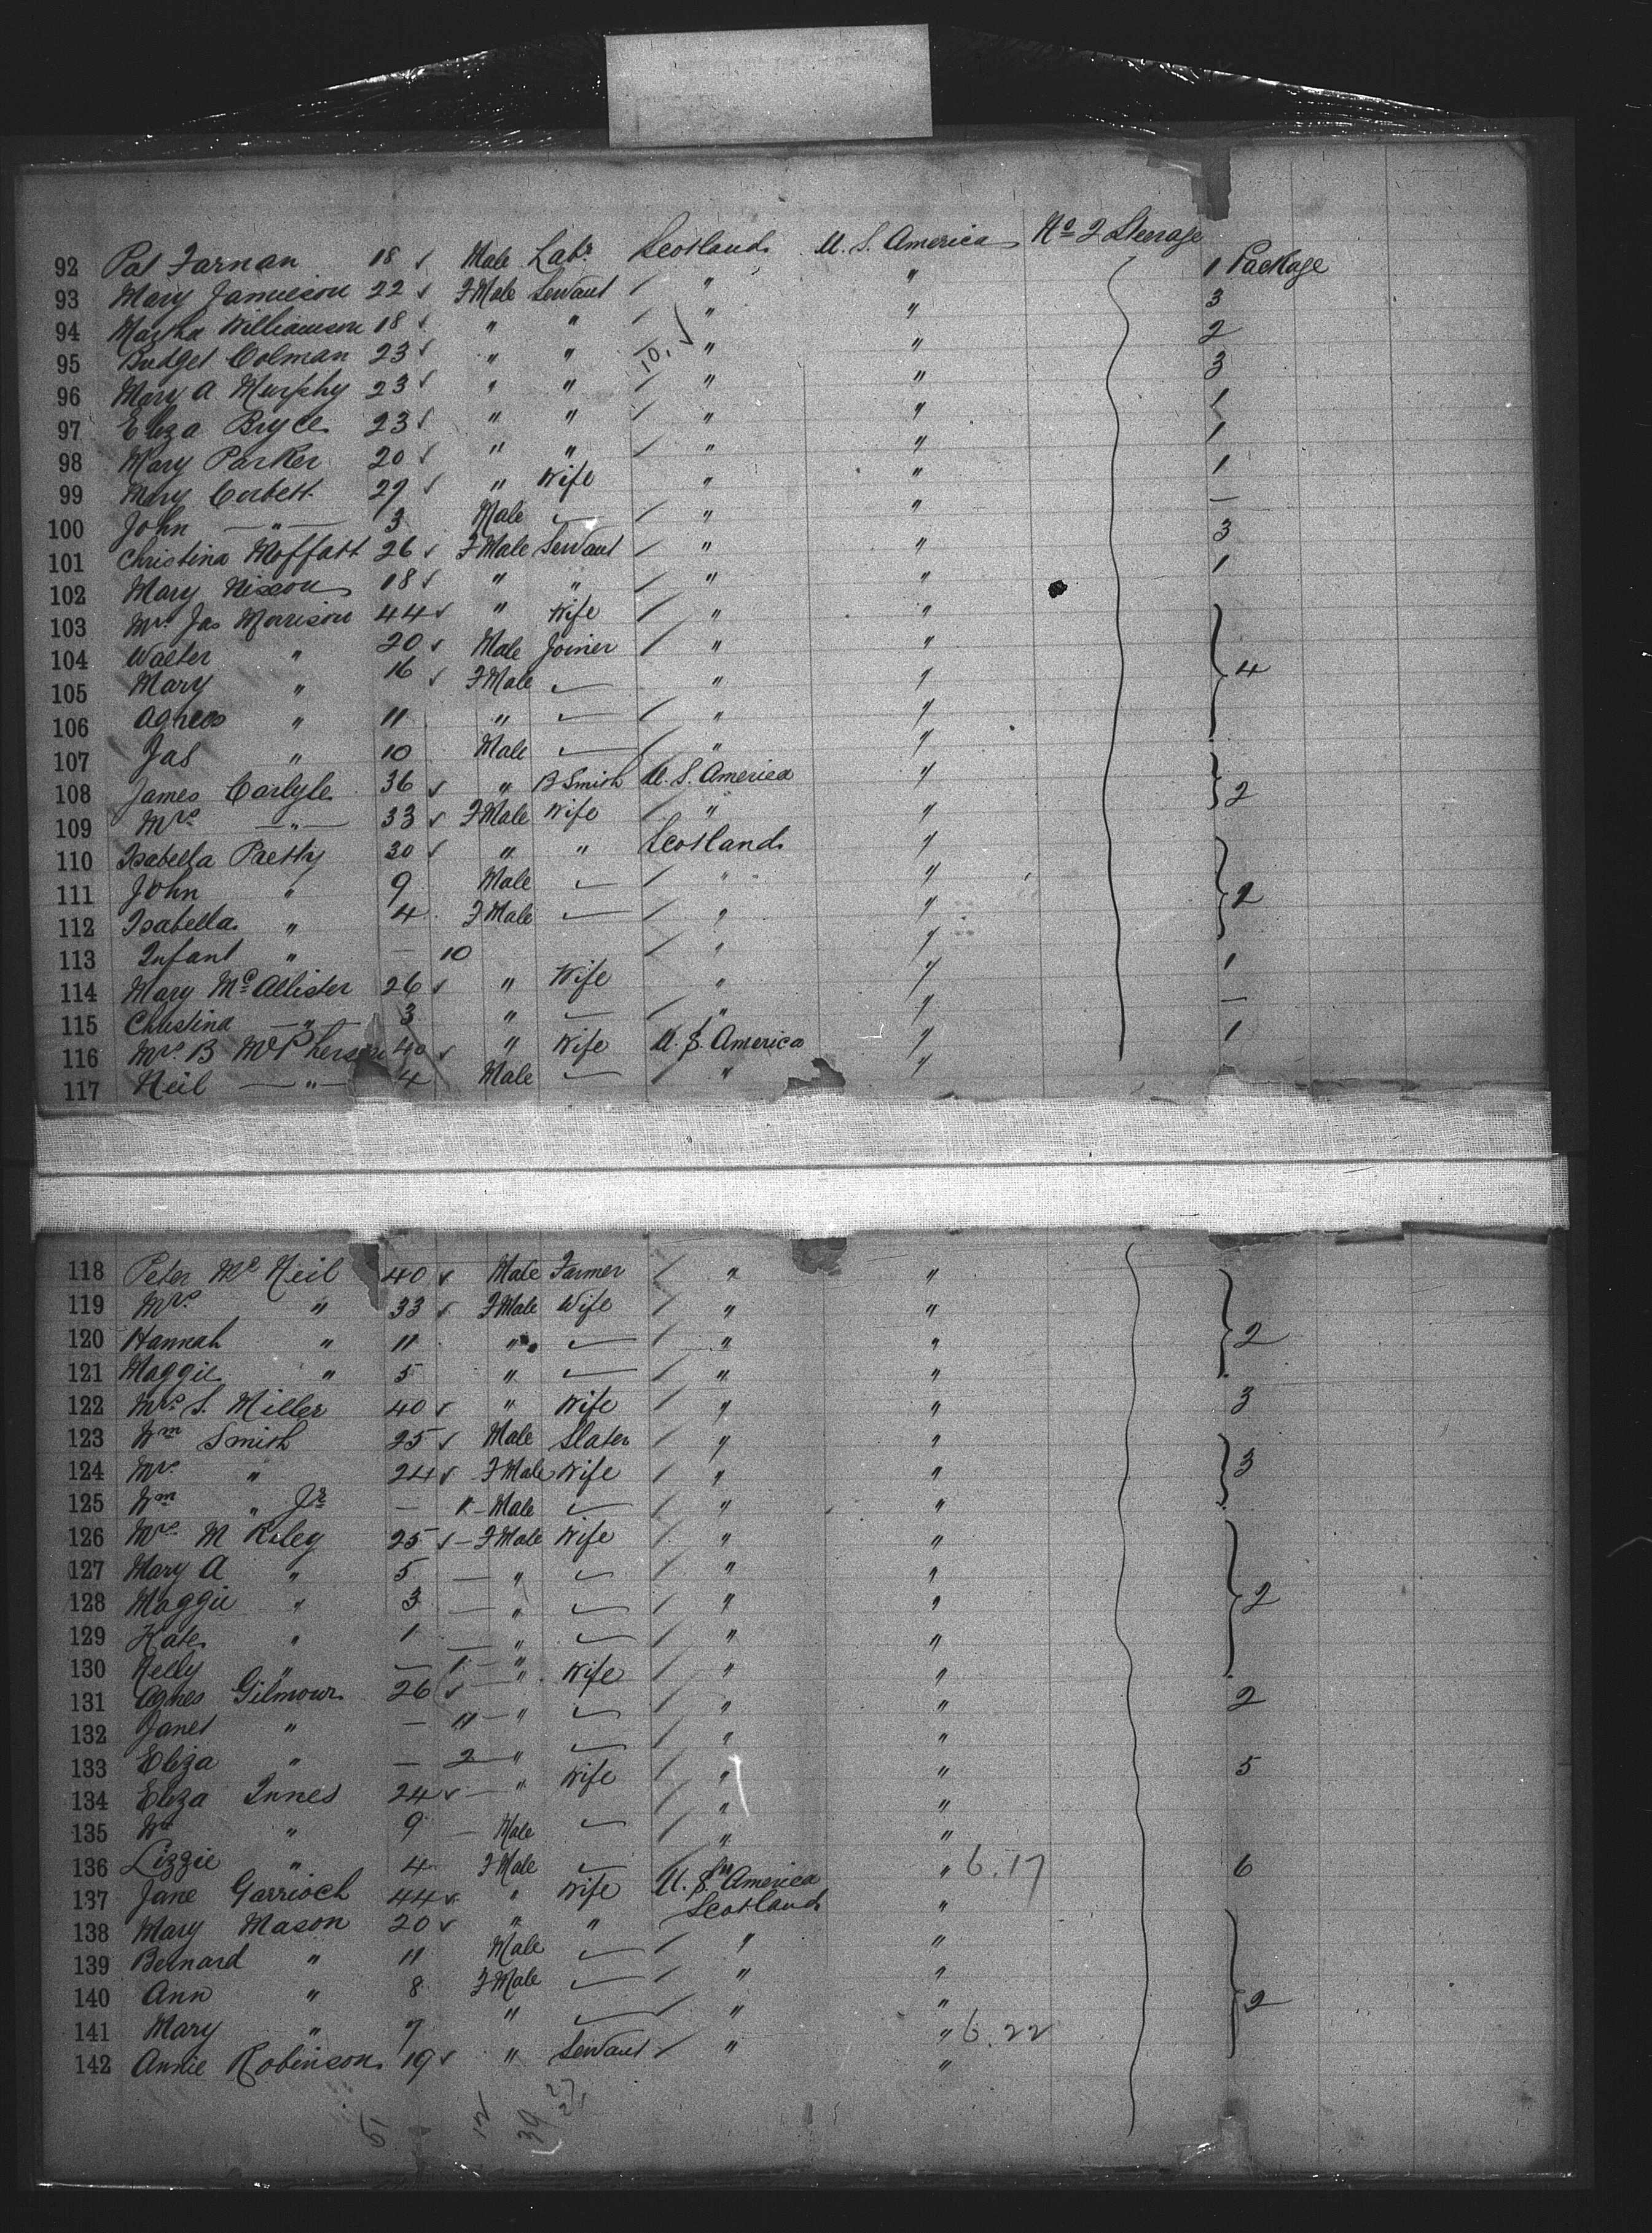 92 Pat Farnan 18 ✓ Male Labr Scotland U. S. America No 2 Steerage 1 Package
93 Mary Jamieson 22 ✓ FMale Servant / " " 3
94 Martha Williamson 18 ✓ " " / " " 2
95 Bridget Colman 23 ✓ " " / " " 3
96 Mary A Murphy 23 ✓ " " / " " 1
97 Eliza Bryce 23 ✓ " " / " " 1
98 Mary Parker 20 ✓ " " / " " 1
99 Mary Corbett 29 ✓ " Wife " " —
100 John — " — 3 Male — / " " 3
101 Christina Moffatt 26 ✓ FMale Servant / " " 1
102 Mary Nixon 18 ✓ " " / " "
103 Mrs Jas Morrison 44 ✓ " Wife / " "
104 Walter " 20 ✓ Male Joiner / " " 4
105 Mary " 16 ✓ FMale — " "
106 Agnes " 11 " — / " "
107 Jas " 10 Male — / " "
108 James Carlyle 36 ✓ " B Smith U. S. America " 2
109 Mrs — " — 33 ✓ FMale Wife / " "
110 Isabella Paetty 30 ✓ " " Scotland "
111 John " 9 Male — / " " 2
112 Isabella " 4 FMale — / " "
113 Infant " — 10 / " "
114 Mary Mc Allister 26 ✓ " Wife " " 1
115 Christina — " — 3 " — / " " —
116 Mrs B McPherson 40 ✓ " Wife U. S. America " 1
117 Neil — " — 4 Male — / " "
118 Peter Mc Neil 40 ✓ Male Farmer / " "
119 Mrs " 33 ✓ FMale Wife / " "
120 Hannah " 11 " — / " " 2
121 Maggie " 5 " — / " "
122 Mrs S. Miller 40 ✓ " Wife / " " 3
123 Wm Smith 25 ✓ Male Slater / " "
124 Mrs " 24 ✓ FMale Wife / " " 3
125 Wm " Jr — Male — / " "
126 Mrs M Riley 25 ✓ — FMale Wife / " "
127 Mary A " 5 — " — / " "
128 Maggie " 3 — " — / " " 2
129 Kate " 1 — " — / " "
130 Nelly " — " / " "
131 Agnes Gilmour 26 ✓ — " Wife / " " 2
132 Janet " — 11 — " — / " "
133 Eliza " — 2 — " — / " " 5
134 Eliza Innes 24 ✓ — " Wife / " "
135 Wm " 9 — Male — / " "
136 Lizzie " 4 FMale — / " " 6.17 6
137 Jane Garrioch 44 ✓ " Wife U. S. America "
138 Mary Mason 20 ✓ " " Scotland "
139 Bernard " 11 Male — / " "
140 Ann " 8 FMale — / " " 2
141 Mary " 7 " — / " " 6.22
142 Annie Robinson 19 ✓ " Servant / " "
51 12 39